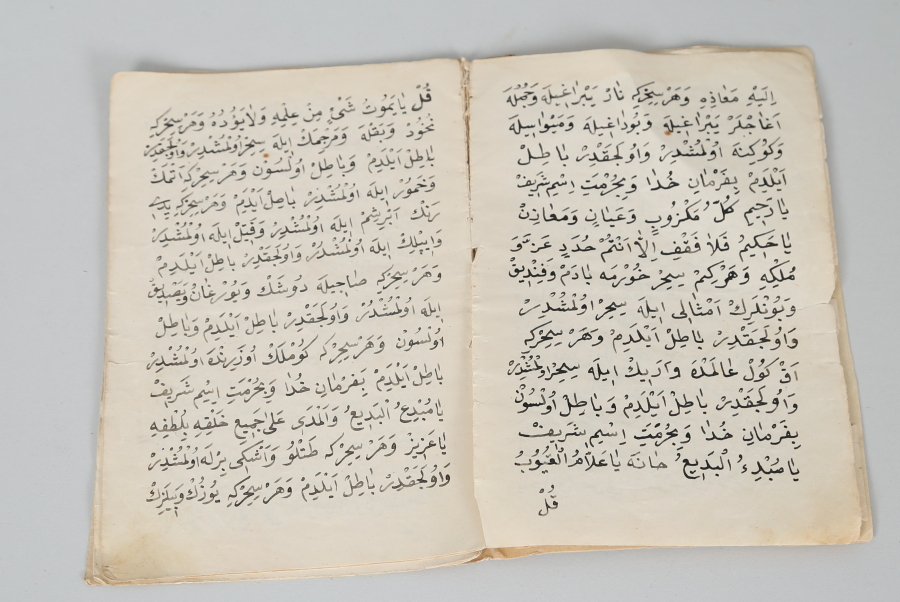 اِلَيْهِ مَعَاذِهِ وَهَرْ سِحِرْكِهِ نَارْ يَبْرَاغِيلَه وَجُمْلَه
اَغَاجْلَرْ يَبْرَاغِيلَه وَبُودَاغِيلَه وَمَيْوَاسِيلَه
وَكُوكِنَه اَوْلمُشْدِرْ وَاوُلَجَقْدِرْ بَاطِلْ
اَيْلَدِمْ بِفَرْمَانِ خُدَا وَبِحُرْمَتِ اِسْمِ شَرِيفْ
يَا رَحِيمَ كُلِّ مَكْرُوبٍ وَغِيَاثَهُ وَمَعَاذَهُ
يَا حَكِيمُ فَلَا
مُلْكِهِ وَهَرْكِمْ سِحِرْ
وَبُونْلَرِكْ اَمْثَالِى اِيلَه سِحِرْ اوُلْمُشْدِرْ
وَاوُلَجَقْدِرْ بَاطِلْ اَيْلَدِمْ وَهَرْ سِحِرْكِهِ
اَوُلْمُشْدِرْ اِيلَه سِحِرْ
وَاوُلَجَقْدِرْ بَاطِلْ اَيْلَدِمْ وَبَاطِلْ اوُلْسُونْ
بِفَرْمَانِ خُدَا وَبِحُرْمَتِ اِسْمِ شَرِيفْ
يَا مُبْدِءُ الْبَدِيعُ يَا عَلَّامُ الْغُيُوبْ
قُلْ
قُلْ يَا يَمُوتُ شَىْءٍ مِنْ عِلْمِهِ وَلَا يَؤُدُهُ وَهَرْ سِحِرْكِهِ
نُخُودْ وَبَقْلَه وَمَرْجِمَكْ اِيلَه سِحِرْ اوُلْمُشْدِرْ وَاوُلَجَقْدِرْ
بَاطِلْ اَيْلَدِمْ وَبَاطِلْ اوُلْسُونْ وَهَرْ سِحِرْكِهِ اَتْمَكْ
وَخَمُورْ اِيلَه اوُلْمُشْدِرْ بَاطِلْ اَيْلَدِمْ وَهَرْ سِحِرْكِهِ يَدِى
رَنْكْ اِبْرِيشِمْ اِيلَه اوُلْمُشْدِرْ وَقِيلْ اِيلَه اوُلْمُشْدِرْ
وَاِيپْلِكْ اِيلَه اوُلْمُشْدِرْ وَاوُلَجَقْدِرْ بَاطِلْ اَيْلَدِمْ
وَهَرْ سِحِرْكِهِ صَاجِيلَه دُوشَكْ وَيُورْغَانْ وَيَصْدِيقْ
اِيلَه اوُلْمُشْدِرْ وَاوُلَجَقْدِرْ بَاطِلْ اَيْلَدِمْ وَبَاطِلْ
اوُلْسُونْ وَهَرْ سِحِرْكِهِ كُومْلَكْ اوُزَرِنْدَه اوُلْمُشْدِرْ
بَاطِلْ اَيْلَدِمْ بِفَرْمَانِ خُدَا وَبِحُرْمَتِ اِسْمِ شَرِيفْ
يَا مُبْدِعُ الْبَدِيعُ عَلَى جَمِيعِ خَلْقِهِ بِلُطْفِهِ
يَا عَزِيزُ وَهَرْ سِحِرْكِهِ طَتْلُو وَاَكْشِى بِرْلَه اوُلْمُشْدِرْ
وَاوُلَجَقْدِرْ بَاطِلْ اَيْلَدِمْ وَهَرْ سِحِرْكِهِ يُوزُكْ وَبِيلَزِكْ